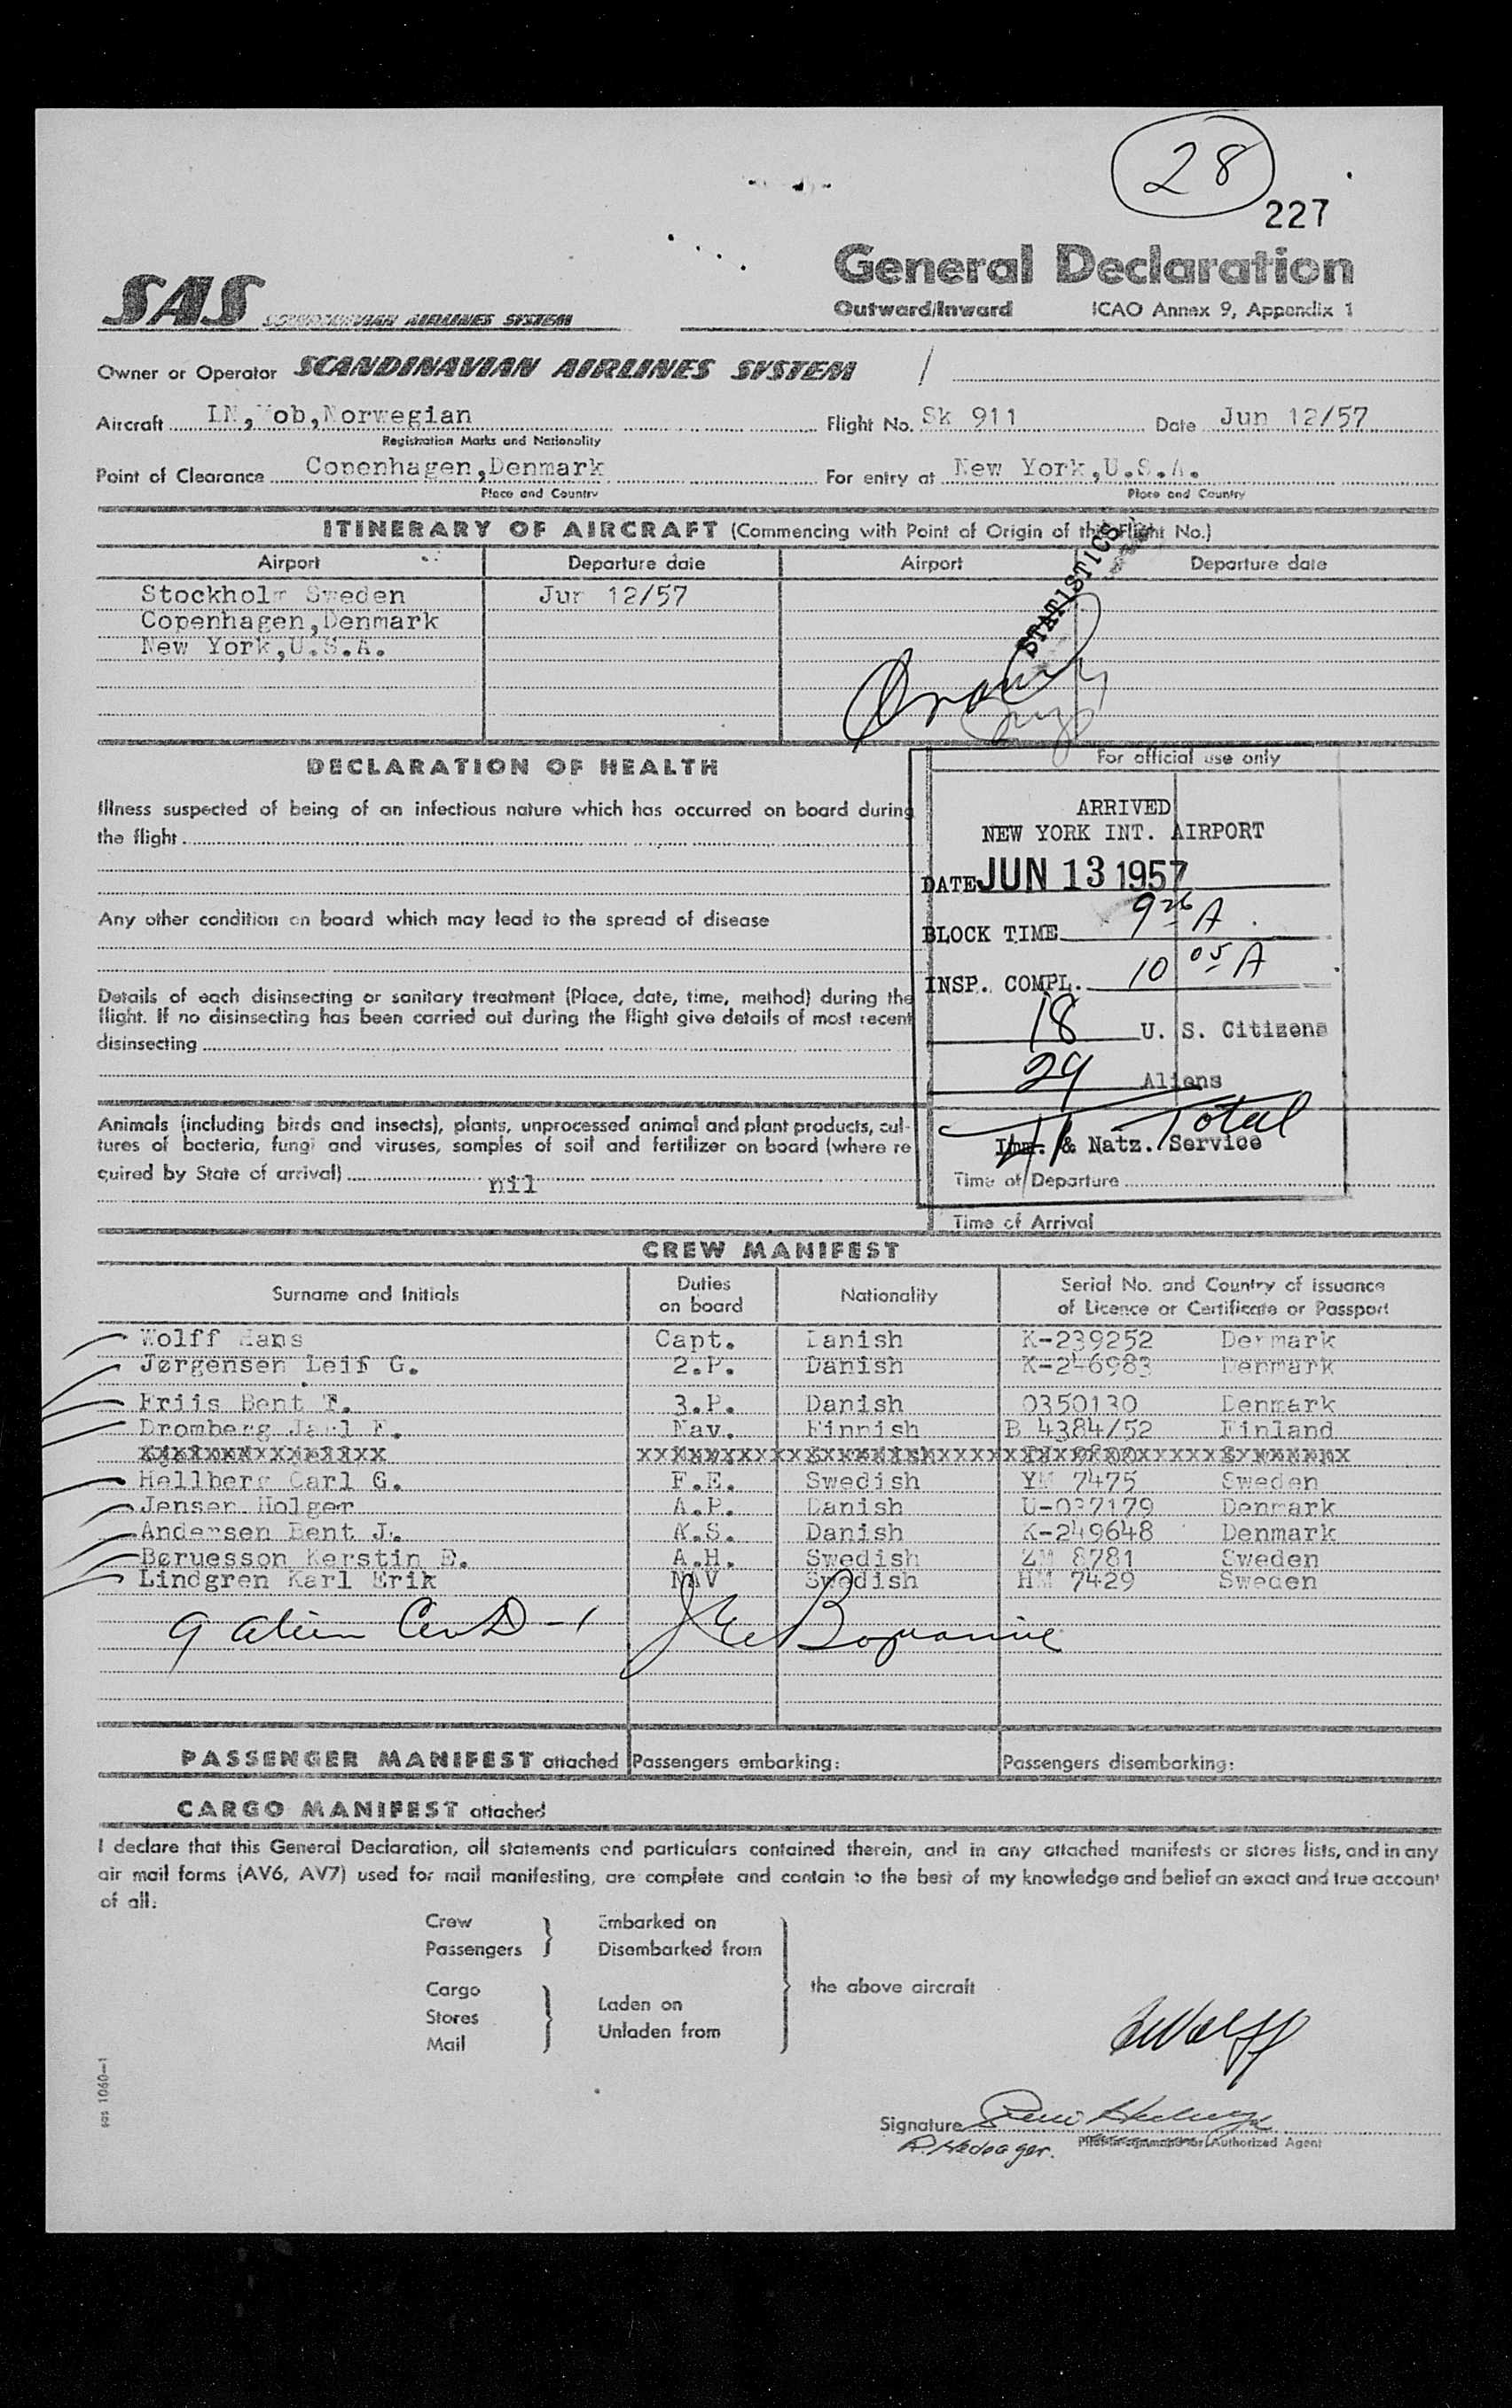 28
227
General Declaration
Outward/Inward ICAO Annex 9, Appendix 1
SAS SCANDINAVIAN AIRLINES SYSTEM
Owner or Operator SCANDINAVIAN AIRLINES SYSTEM /
Aircraft LN, ob,Norwegian Flight No. Sk 911 Date Jun 12/57
Registration Marks and Nationality
Point of Clearance Copenhagen,Denmark For entry at New York,U.S.A.
Place and Country Place and Country
ITINERARY OF AIRCRAFT (Commencing with Point of Origin of this Flight No.)
Airport Departure date Airport Departure date
STATISTICS
Stockholm Sweden Jun 12/57
Copenhagen,Denmark
New York,U.S.A.
DECLARATION OF HEALTH
For official use only
Illness suspected of being of an infectious nature which has occurred on board during
the flight
ARRIVED
NEW YORK INT. AIRPORT
DATE JUN 13 1957
Any other condition on board which may lead to the spread of disease
BLOCK TIME 9 26 A
INSP. COMPL. 10 05 A
Details of each disinsecting or sanitary treatment (Place, date, time, method) during the
flight. If no disinsecting has been carried out during the flight give details of most recent
disinsecting
18 U. S. Citizens
29 Aliens
Total
Imm. & Natz. Service
Animals (including birds and insects), plants, unprocessed animal and plant products, cul-
tures of bacteria, fungi and viruses, samples of soil and fertilizer on board (where re
quired by State of arrival) nil
Time of Departure
Time of Arrival
CREW MANIFEST
Surname and Initials Duties on board Nationality Serial No. and Country of issuance of Licence or Certificate or Passport
Wolff Hans Capt. Danish K-239252 Denmark
Jørgensen Leif G. 2.P. Danish K-246983 Denmark
Friis Bent T. 3.P. Danish 0350130 Denmark
Dromberg Jarl F. Nav. Finnish B 4384/52 Finland
Hellberg Carl G. F.E. Swedish YM 7475 Sweden
Jensen Holger A.P. Danish U-037179 Denmark
Andersen Bent J. A.S. Danish K-249648 Denmark
Børuesson Kerstin E. A.H. Swedish ZM 8781 Sweden
Lindgren Karl Erik NAV Swedish HM 7429 Sweden
9 alien
PASSENGER MANIFEST attached Passengers embarking: Passengers disembarking:
CARGO MANIFEST attached
I declare that this General Declaration, all statements and particulars contained therein, and in any attached manifests or stores lists, and in any
air mail forms (AV6, AV7) used for mail manifesting, are complete and contain to the best of my knowledge and belief an exact and true account
of all:
Crew Embarked on
Passengers Disembarked from
Cargo
the above aircraft
Laden on
Stores
Unladen from
Mail
Wolff
sas 1060-1
Signature
R. Hedeager. Pilot-in-command or Authorized Agent